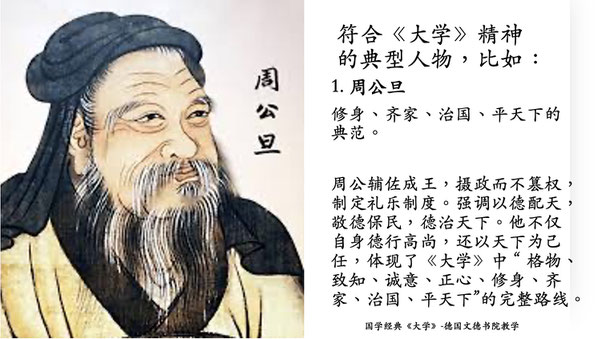 周公旦
符合《大学》精神
的典型人物，比如：
1. 周公旦
修身、齐家、治国、平天下的
典范。
周公辅佐成王，摄政而不篡权，
制定礼乐制度。强调以德配天，
敬德保民，德治天下。他不仅
自身德行高尚，还以天下为己
任，体现了《大学》中“ 格物、
致知、诚意、正心、修身、齐
家、治国、平天下”的完整路线。
国学经典《大学》-德国文德书院教学